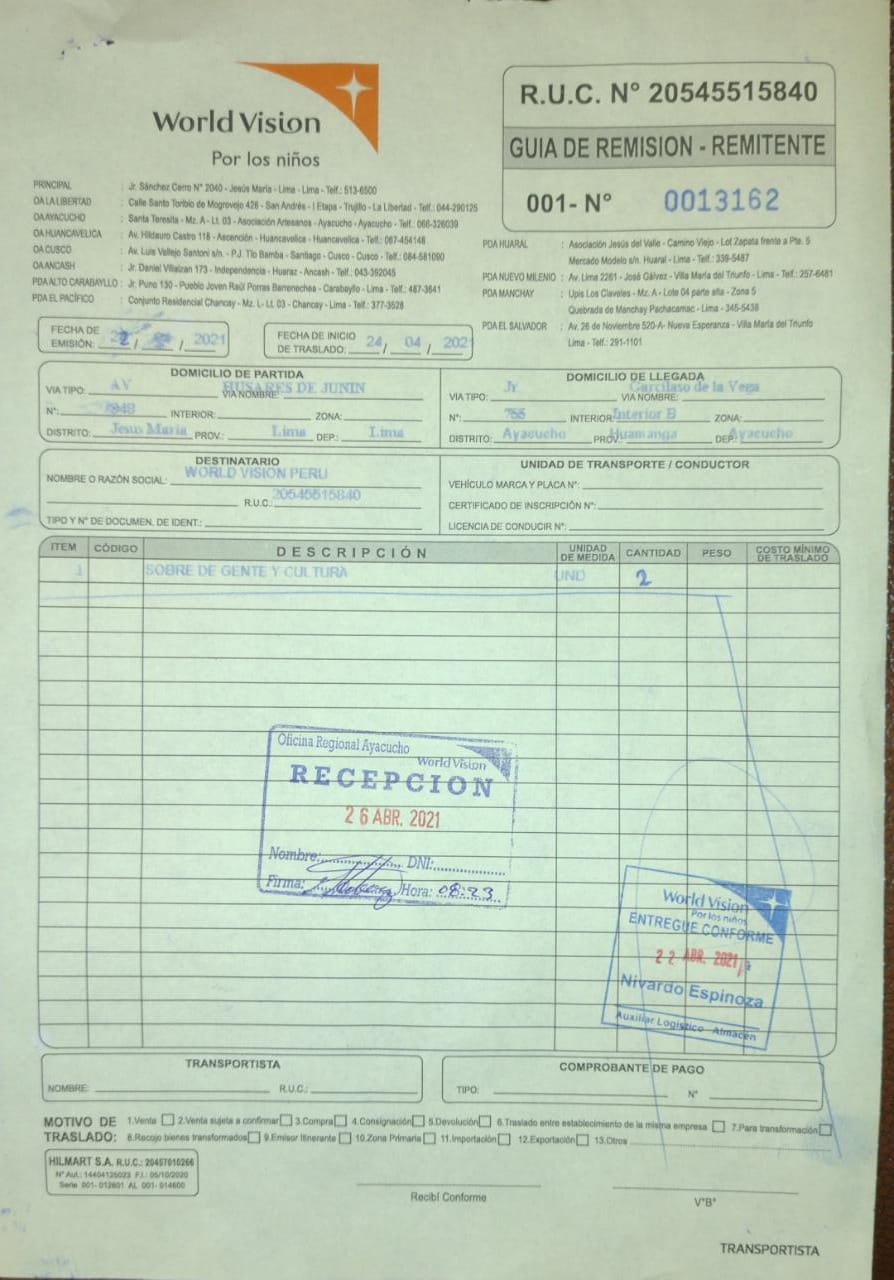 World Vision
Por los niños
R.U.C. N° 20545515840
GUIA DE REMISION - REMITENTE
001- N° 0013162
PRINCIPAL : Jr. Sánchez Cerro N° 2040 - Jesús María - Lima - Lima - Telf.: 513-6500
OA LA LIBERTAD : Calle Santo Toribio de Mogrovejo 426 - San Andrés - I Etapa - Trujillo - La Libertad - Telf.: 044-290125
OA AYACUCHO : Santa Teresita - Mz. A - Lt. 03 - Asociación Artesanos - Ayacucho - Ayacucho - Telf.: 066-326039
OA HUANCAVELICA : Av. Hildauro Castro 118 - Ascención - Huancavelica - Huancavelica - Telf.: 067-454148
OA CUSCO : Av. Luis Vallejo Santoni s/n. - P.J. Tio Bamba - Santiago - Cusco - Cusco - Telf.: 084-581090
OA ANCASH : Jr. Daniel Villaizan 173 - Independencia - Huaraz - Ancash - Telf.: 043-392045
PDA ALTO CARABAYLLO : Jr. Puno 130 - Pueblo Joven Raúl Porras Barrenechea - Carabayllo - Lima - Telf.: 487-3641
PDA EL PACÍFICO : Conjunto Residencial Chancay - Mz. L- Lt. 03 - Chancay - Lima - Telf.: 377-3528
PDA HUARAL : Asociación Jesús del Valle - Camino Viejo - Lof Zapata frente a Pte. 5
Mercado Modelo s/n. Huaral - Lima - Telf.: 339-5487
PDA NUEVO MILENIO : Av. Lima 2261 - José Gálvez - Villa María del Triunfo - Lima - Telf.: 257-6481
PDA MANCHAY : Upis Los Claveles - Mz. A - Lote 04 parte alta - Zona 5
Quebrada de Manchay Pachacamac - Lima - 345-5438
PDA EL SALVADOR : Av. 26 de Noviembre 520-A- Nueva Esperanza - Villa María del Triunfo
Lima - Telf.: 291-1101
FECHA DE
EMISIÓN: 22 / / 2021
FECHA DE INICIO
DE TRASLADO: 24 / 04 / 2021
DOMICILIO DE PARTIDA
VIA TIPO: AV VIA NOMBRE: HUSARES DE JUNIN
N°: INTERIOR: ZONA:
DISTRITO: Jesus Maria PROV.: Lima DEP.: Lima
DOMICILIO DE LLEGADA
VIA TIPO: Jr VIA NOMBRE: Garcilaso de la Vega
N°: 755 INTERIOR: Interior B ZONA:
DISTRITO: Ayacucho PROV.: Huamanga DEP.: Ayacucho
DESTINATARIO
NOMBRE O RAZÓN SOCIAL: WORLD VISION PERU
R.U.C.: 20545515840
TIPO Y N° DE DOCUMEN. DE IDENT.:
UNIDAD DE TRANSPORTE / CONDUCTOR
VEHÍCULO MARCA Y PLACA N°:
CERTIFICADO DE INSCRIPCIÓN N°:
LICENCIA DE CONDUCIR N°:
ITEM CÓDIGO DESCRIPCIÓN UNIDAD DE MEDIDA CANTIDAD PESO COSTO MÍNIMO DE TRASLADO
1 SOBRE DE GENTE Y CULTURA UND 2
Oficina Regional Ayacucho
World Vision
RECEPCION
26 ABR. 2021
Nombre: DNI:
Firma: Hora: 08:23
World Vision
Por los niños
ENTREGUE CONFORME
22 ABR. 2021
Nivardo Espinoza
Auxiliar Logístico - Almacén
TRANSPORTISTA
NOMBRE: R.U.C.:
COMPROBANTE DE PAGO
TIPO: N°
MOTIVO DE TRASLADO: 1.Venta 2.Venta sujeta a confirmar 3.Compra 4.Consignación 5.Devolución 6.Traslado entre establecimiento de la misma empresa 7.Para transformación
8.Recojo bienes transformados 9.Emisor Itinerante 10.Zona Primaria 11.Importación 12.Exportación 13.Otros
HILMART S.A. R.U.C.: 20457010266
N° Aut.: 14404125023 F.I.: 05/10/2020
Serie 001- 012601 AL 001- 014600
Recibí Conforme
V°B°
TRANSPORTISTA